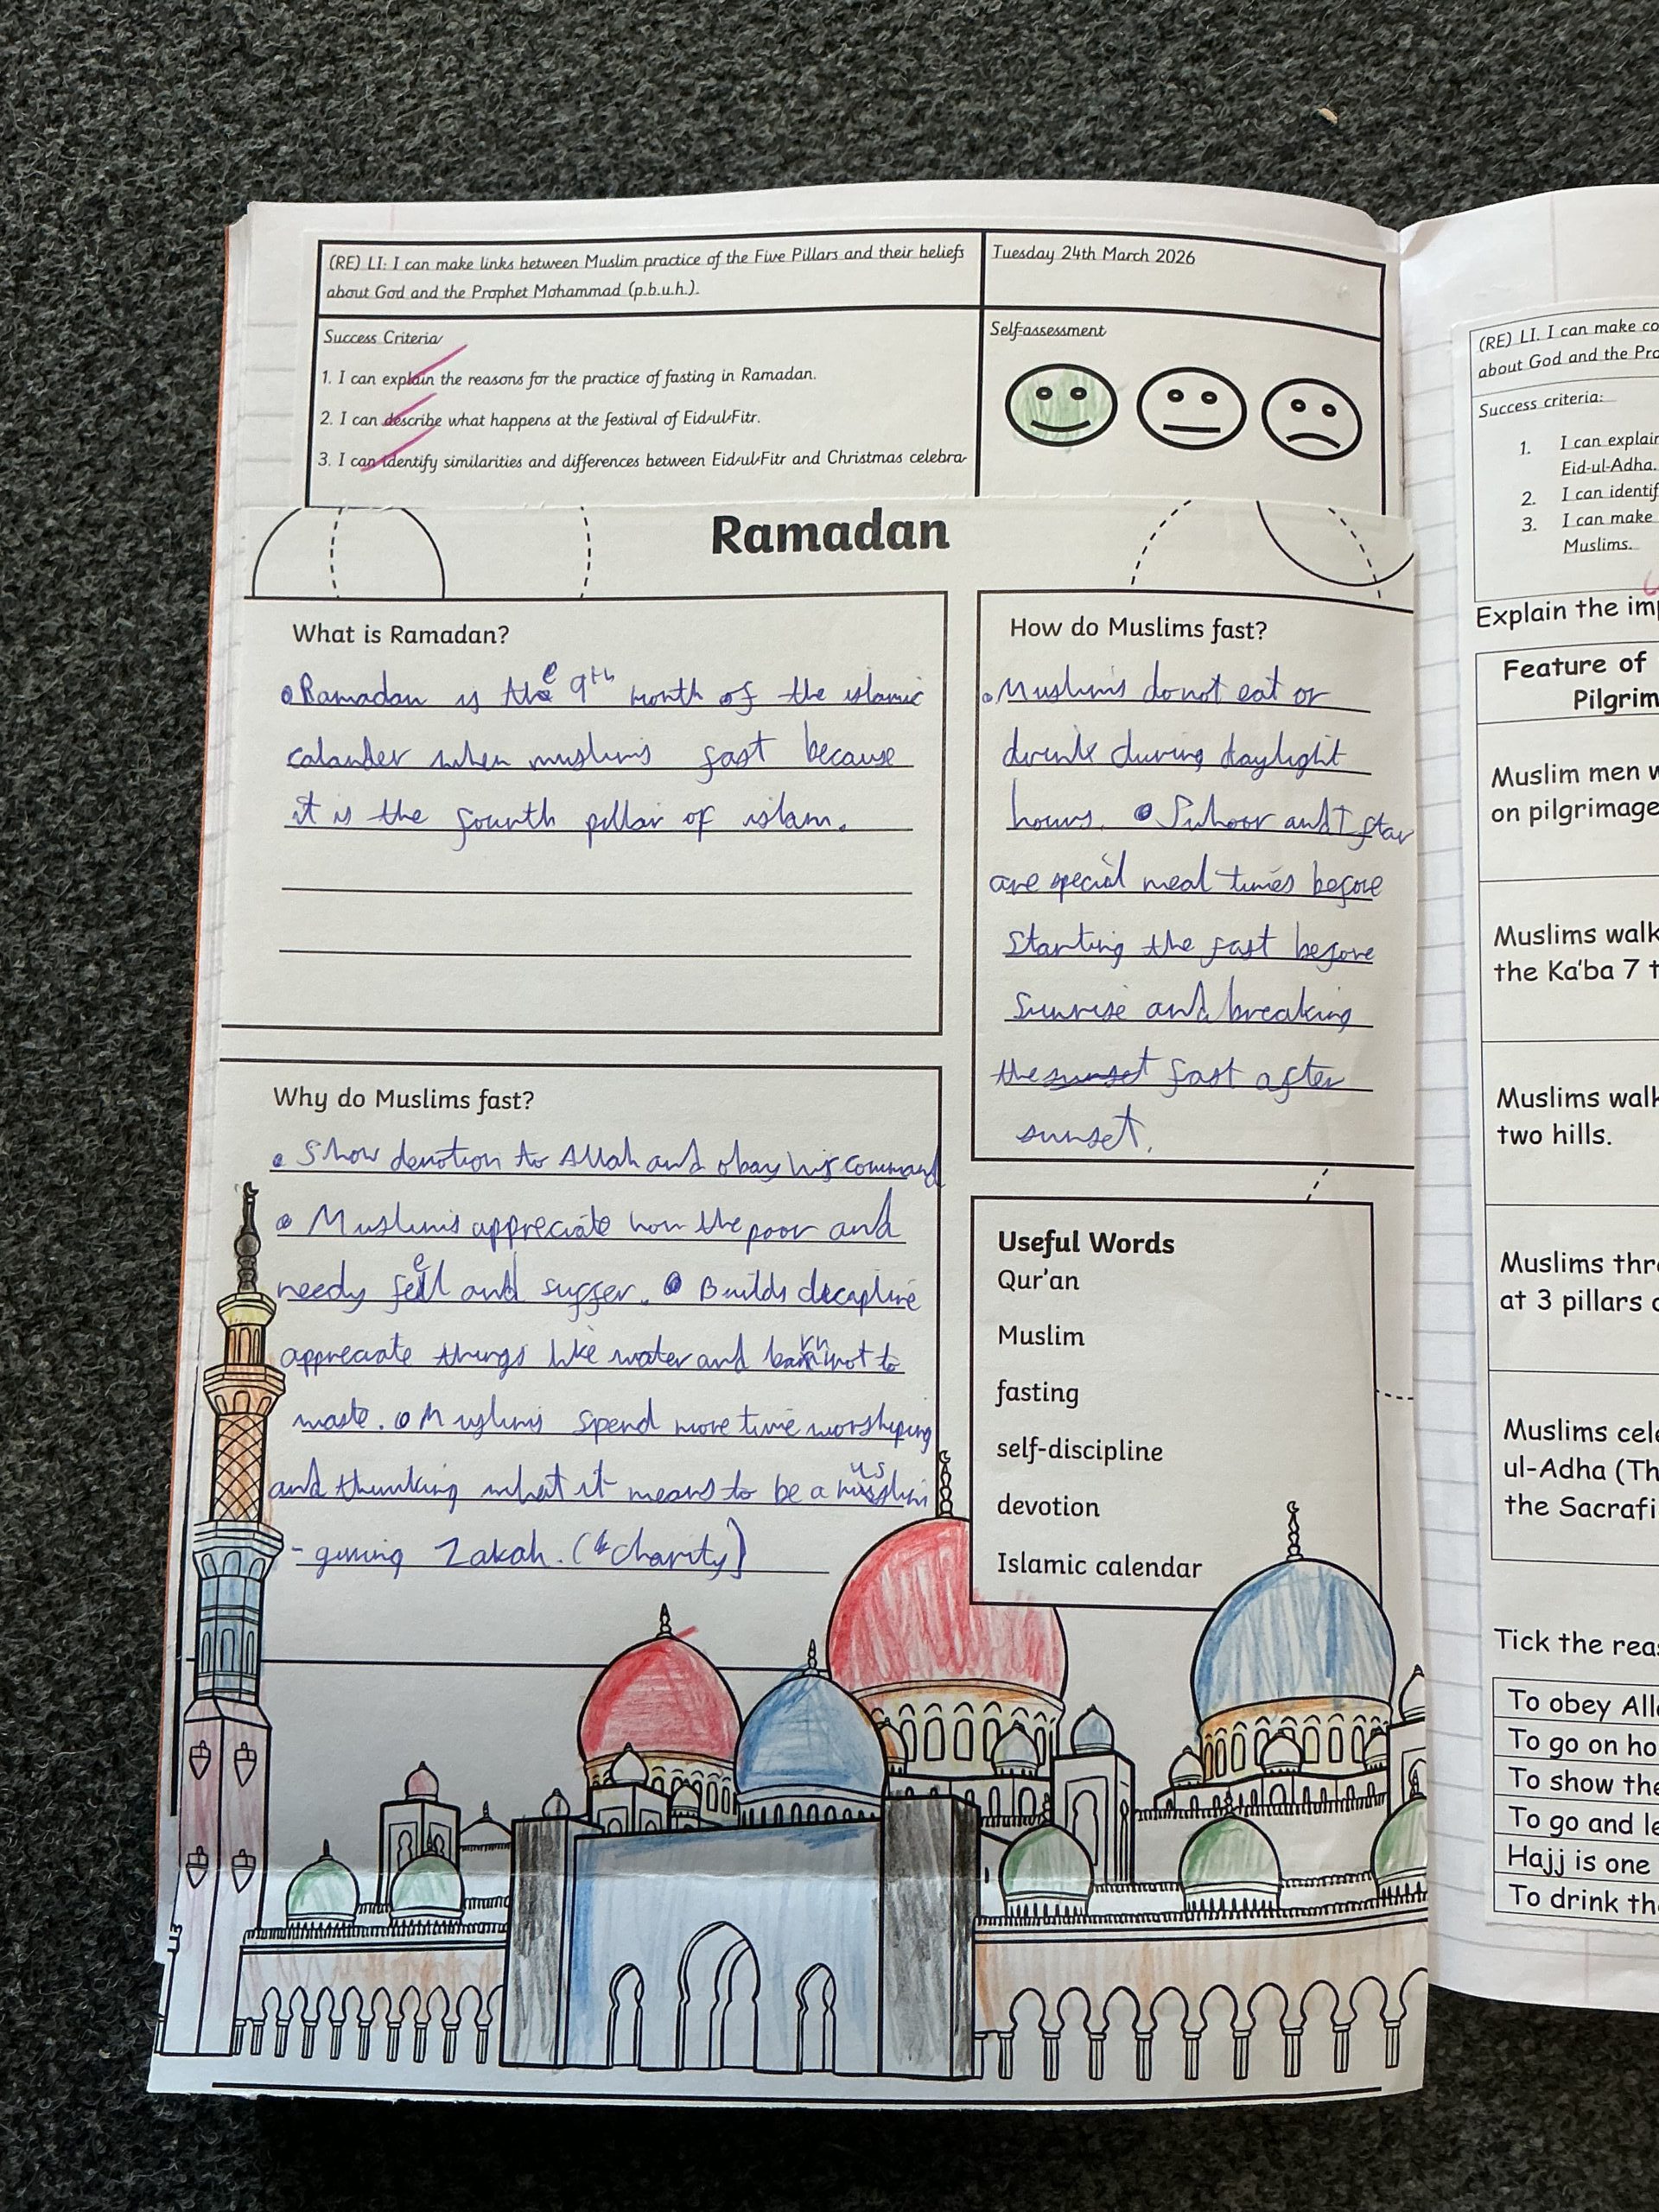 (RE) LI: I can make links between Muslim practice of the Five Pillars and their beliefs
about God and the Prophet Mohammad (p.b.u.h.).
Tuesday 24th March 2026
Success Criteria
1. I can explain the reasons for the practice of fasting in Ramadan.
2. I can describe what happens at the festival of Eid-ul-Fitr.
3. I can identify similarities and differences between Eid-ul-Fitr and Christmas celebra-
Self-assessment
Ramadan
What is Ramadan?
Ramadan is the 9th month of the islamic
calander when muslims fast because
it is the fourth pillar of islam.
How do Muslims fast?
Muslims do not eat or
drink during daylight
hours. Suhoor and Iftar
are special meal times before
starting the fast before
sunrise and breaking
the sunset fast after
sunset.
Why do Muslims fast?
Show devotion to Allah and obay his command
Muslims appreciate how the poor and
needy feel and suffer. Builds decapline
appreciate things like water and not to
waste. Muslims spend more time worshiping
and thinking what it means to be a muslim
- giving Zakah. (charity)
Useful Words
Qur'an
Muslim
fasting
self-discipline
devotion
Islamic calendar
(RE) LI. I can make co
about God and the Pro
Success criteria:
1. I can explain
Eid-ul-Adha.
2. I can identif
3. I can make
Muslims.
Explain the imp
Feature of
Pilgrim
Muslim men w
on pilgrimage
Muslims walk
the Ka'ba 7 t
Muslims walk
two hills.
Muslims thr
at 3 pillars
Muslims cele
ul-Adha (Th
the Sacrafi
Tick the rea
To obey All
To go on ho
To show the
To go and le
Hajj is one
To drink th